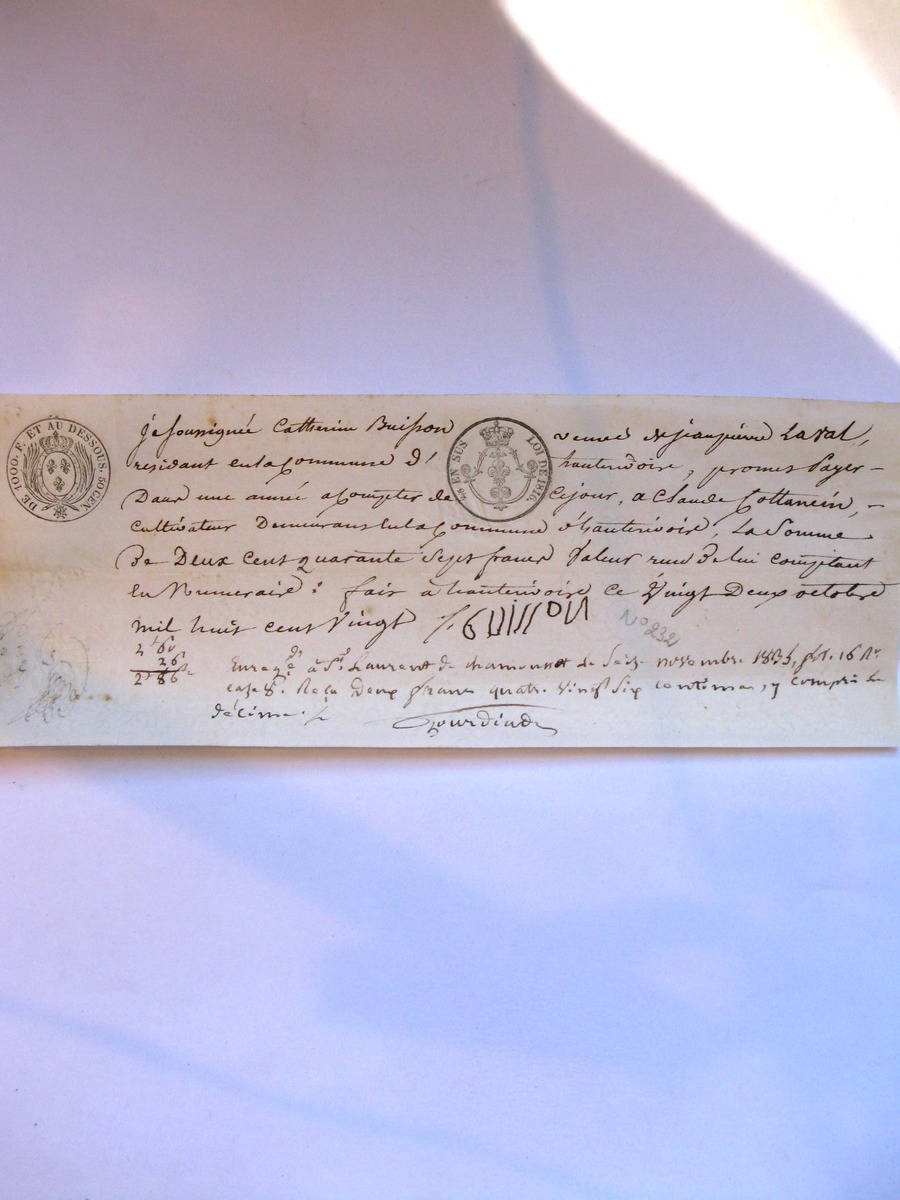 DE 100. F. ET AU DESSOUS. 50 CEN.
EN SUS LOI DE 1816.
je soussignée Catherine Buisson veuve de jean pierre Laval,
residant en la Commune d' hauterivoire, promet Payer
Dans une année a Compter de Cejour, a Claude Cottancin,
Cultivateur Demeurant en la Commune d'hauterivoire, La Somme
De Deux Cent quarante Sept francs Valeur reçue De lui Comptant
en Numeraire : fait a hauterivoire ce Vingt Deux octobre
mil huit cent Vingt / BUISSON
N° 232
2 60
26
2 86
Enreg à St Laurent de chamousset le Seize novembre 1835, f° 16 R°
case 8. Reçu deux francs quatre Vingt Six centimes, y compris le
décime.